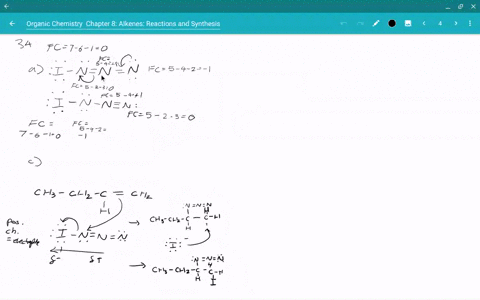 Organic Chemistry Chapter 8: Alkenes: Reactions and Synthesis
4
34
FC=7-6-1=0
a) I-N=N=N FC=5-4-2=-1
FC=5-4=+1
I-N-N≡N:
FC=5-2-3=0
FC=
7-6-1=0
5-4-2=
-1
c)
CH3-CH2-C=CH2
H
pos.
ch.
I-N=N=N
δ- δ+
N=N=N
CH3-CH2-C-C-H
H
I
N=N=N
CH3-CH2-C-C-H
H I